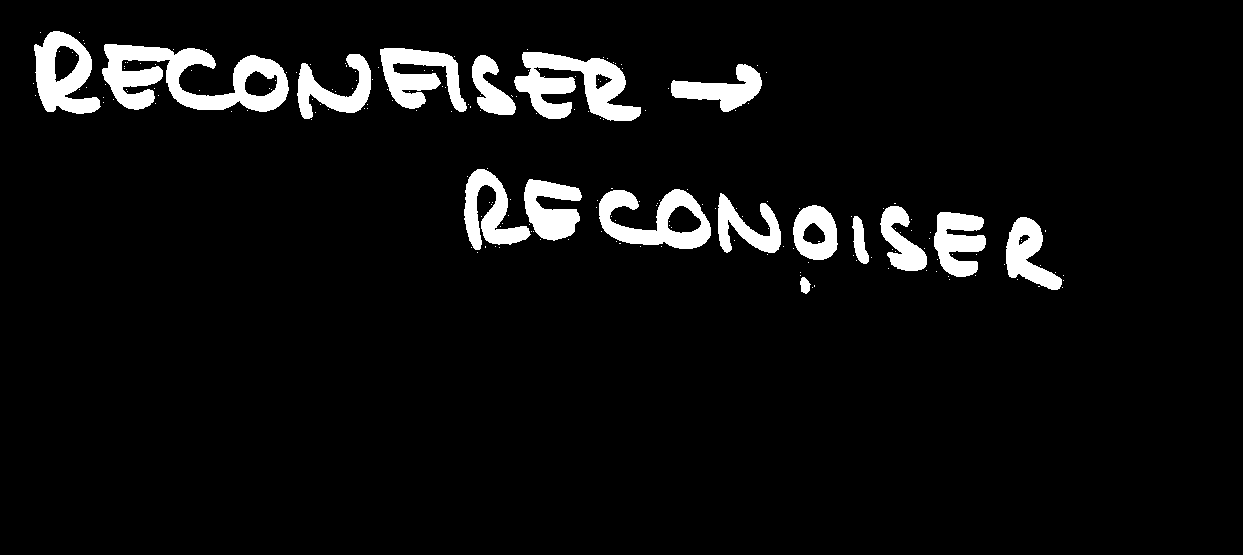 RECONEISER →
RECONỌISER